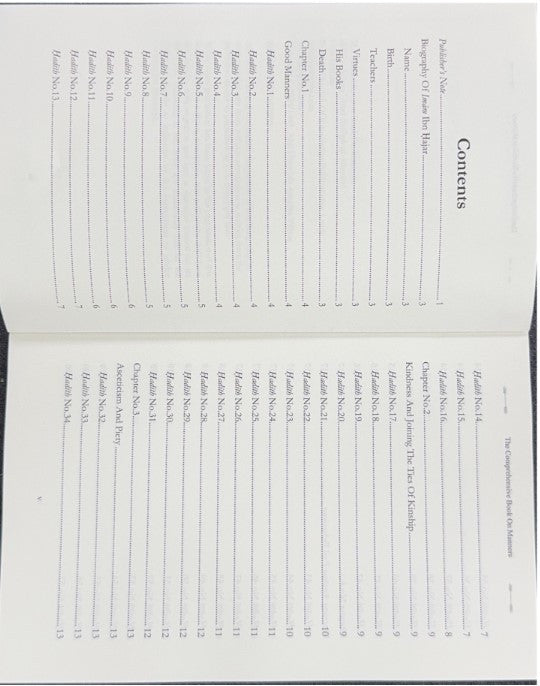 Contents
Publisher's Note.......... 1
Biography Of Imām Ibn Hajar.......... 3
Name.......... 3
Birth.......... 3
Teachers.......... 3
Virtues.......... 3
His Books.......... 3
Death.......... 3
Chapter No.1.......... 4
Good Manners.......... 4
Ḥadīth No.1.......... 4
Ḥadīth No.2.......... 4
Ḥadīth No.3.......... 4
Ḥadīth No.4.......... 4
Ḥadīth No.5.......... 5
Ḥadīth No.6.......... 5
Ḥadīth No.7.......... 5
Ḥadīth No.8.......... 5
Ḥadīth No.9.......... 6
Ḥadīth No.10.......... 6
Ḥadīth No.11.......... 6
Ḥadīth No.12.......... 7
Ḥadīth No.13.......... 7
The Comprehensive Book On Manners
Ḥadīth No.14.......... 7
Ḥadīth No.15.......... 7
Ḥadīth No.16.......... 8
Chapter No.2.......... 9
Kindness And Joining The Ties Of Kinship.......... 9
Ḥadīth No.17.......... 9
Ḥadīth No.18.......... 9
Ḥadīth No.19.......... 9
Ḥadīth No.20.......... 9
Ḥadīth No.21.......... 10
Ḥadīth No.22.......... 10
Ḥadīth No.23.......... 10
Ḥadīth No.24.......... 11
Ḥadīth No.25.......... 11
Ḥadīth No.26.......... 11
Ḥadīth No.27.......... 11
Ḥadīth No.28.......... 12
Ḥadīth No.29.......... 12
Ḥadīth No.30.......... 12
Ḥadīth No.31.......... 12
Chapter No.3.......... 13
Asceticism And Piety.......... 13
Ḥadīth No.32.......... 13
Ḥadīth No.33.......... 13
Ḥadīth No.34.......... 13
v